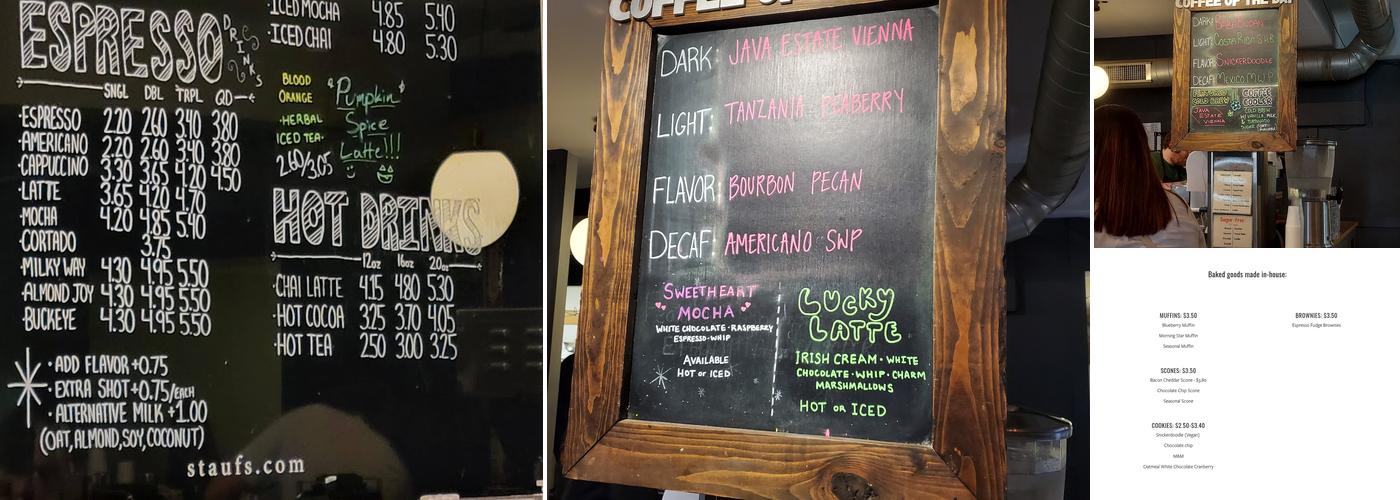 ESPRESSO
DRINKS
SNGL DBL TRPL QD
·ESPRESSO 2.20 2.60 3.40 3.80
·AMERICANO 2.20 2.60 3.40 3.80
·CAPPUCCINO 3.30 3.65 4.20 4.50
·LATTE 3.65 4.20 4.70
·MOCHA 4.20 4.85 5.40
·CORTADO 3.75
·MILKY WAY 4.30 4.95 5.50
·ALMOND JOY 4.30 4.95 5.50
·BUCKEYE 4.30 4.95 5.50
· ADD FLAVOR +0.75
· EXTRA SHOT +0.75/EACH
· ALTERNATIVE MILK +1.00
(OAT, ALMOND, SOY, COCONUT)
staufs.com
·ICED MOCHA 4.85 5.40
·ICED CHAI 4.80 5.30
BLOOD
ORANGE
·HERBAL
ICED TEA·
2.60/3.05
"Pumpkin"
Spice
Latte!!!
HOT DRINKS
12oz 16oz 20oz
·CHAI LATTE 4.15 4.80 5.30
·HOT COCOA 3.25 3.70 4.05
·HOT TEA 2.50 3.00 3.25
COFFEE OF
DARK: JAVA ESTATE VIENNA
LIGHT: TANZANIA PEABERRY
FLAVOR: BOURBON PECAN
DECAF: AMERICANO SWP
SWEETHEART
MOCHA
WHITE CHOCOLATE·RASPBERRY
ESPRESSO·WHIP
AVAILABLE
HOT or ICED
LUCKY
LATTE
IRISH CREAM·WHITE
CHOCOLATE·WHIP·CHARM
MARSHMALLOWS
HOT or ICED
COFFEE OF THE DAY
DARK:
LIGHT: COSTA RICA SHB
FLAVOR: SNICKERDOODLE
DECAF: MEXICO M.W.P.
FEATURED
COLD BREW
JAVA
ESTATE
VIENNA
COFFEE
COOLER
COLD BREW
W/ VANILLA, MILK,
& TURBINADO
SUGAR
Sugar Free
Baked goods made in-house:
MUFFINS: $3.50
Blueberry Muffin
Morning Star Muffin
Seasonal Muffin
SCONES: $3.50
Bacon Cheddar Scone - $3.80
Chocolate Chip Scone
Seasonal Scone
COOKIES: $2.50-$3.40
Snickerdoodle (Vegan)
Chocolate chip
M&M
Oatmeal White Chocolate Cranberry
BROWNIES: $3.50
Espresso Fudge Brownies